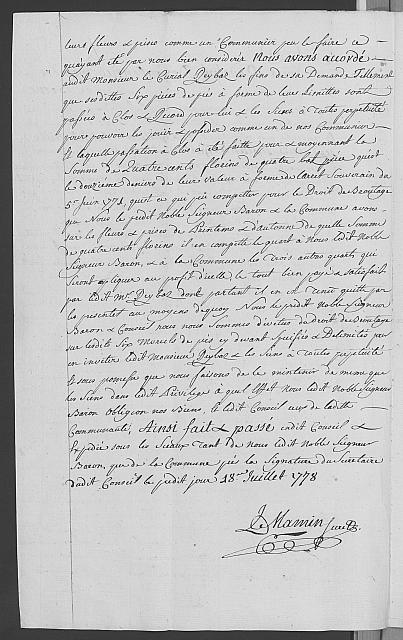 leurs fleurs & prises comme un Communier peu le faire ce
qu'ayant été par nous bien considéré Nous avons accordé
audit Monsieur le Curial Reybaz les fins de sa Demande Tellement
que sesdittes Six pièces de prés à forme de leur Limittes sont
passées à Clos & Record pour lui & les Siens à Toute perpétuité
pour pouvoir les jouir & posséder comme un de nos Communier
& laquelle passation à Clos a été faitte pour & moyennant la
Somme de Quatre cents florins de quatre bat pièce qui est
le douzième deniers de leur valeur à forme de l'arrêt Souverain du
5e Juin 1771, qui est ce que peu compétter pour le Droit de Bouchage
que Nous le prédit Noble Seigneur Baron & la Commune avons
sur les fleurs & prises de Printems & d'automne de quelle Somme
de quatre cent florins il en compette le quart à Nous ledit Noble
Seigneur Baron, & à la Commune les Trois autres quarts qui
Seront appliquer au profit d'icelle le tout bien payé & Satisfait
par ledit Mr Reybaz dont partant il en est Tenu quitte par
les presentes au moyens dequoy Nous le prédit Noble Seigneur
Baron & Conseil nous nous Sommes divetus du Droit de
sur lesdits Six Morcels de prés cy devant Spécifiés & Délimités pour
en invêtir ledit Monsieur Reybaz & les Siens à Toutes perpétuité
& sous promesse que nous faisons de le maintenir de même que
les Siens dans ledit Privilège à quel Effet Nous ledit Noble Seigneur
Baron obligeon nos Biens, & ledit Conseil ceux de ladite
Communauté, Ainsi fait & passé en dit Conseil &
Expédié sous les Sceaux Tant de Nous ledit Noble Seigneur
Baron, que de la Commune & la Signature du Secretaire
dudit Conseil le predit jour 18me Juillet 1778
Le Mamin